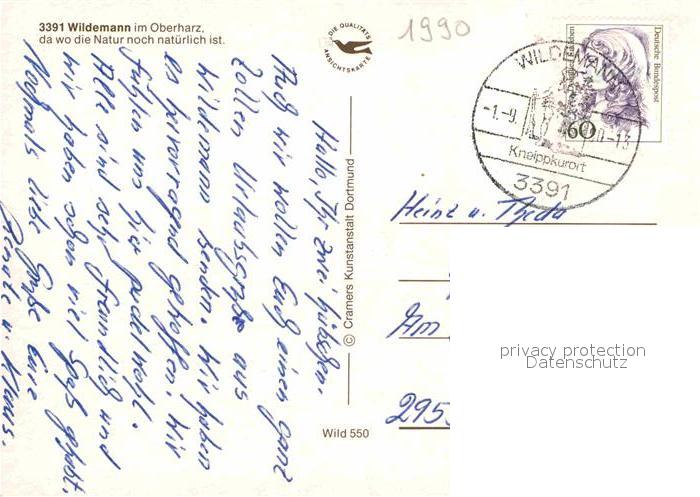 3391 Wildemann im Oberharz,
da wo die Natur noch natürlich ist.
DIE QUALITÄTS
ANSICHTSKARTE
1990
Deutsche Bundespost
60
WILDEMANN
-1.-9.
90-13
Kneippkurort
3391
Hallo, Ihr zwei hübschen.
Auch wir wollen Euch einen ganz
tollen Urlaubsgruß aus
Wildemann senden. Wir haben
es hervorragend getroffen. Wir
fühlen uns hier pudelwohl.
Alle sind sehr freundlich und
wir haben schon viel Spaß gehabt.
Nochmals liebe Grüße Eure
Renate u. Klaus.
© Cramers Kunstanstalt Dortmund
Wild 550
Heinz u. Theda
Am
295
privacy protection
Datenschutz